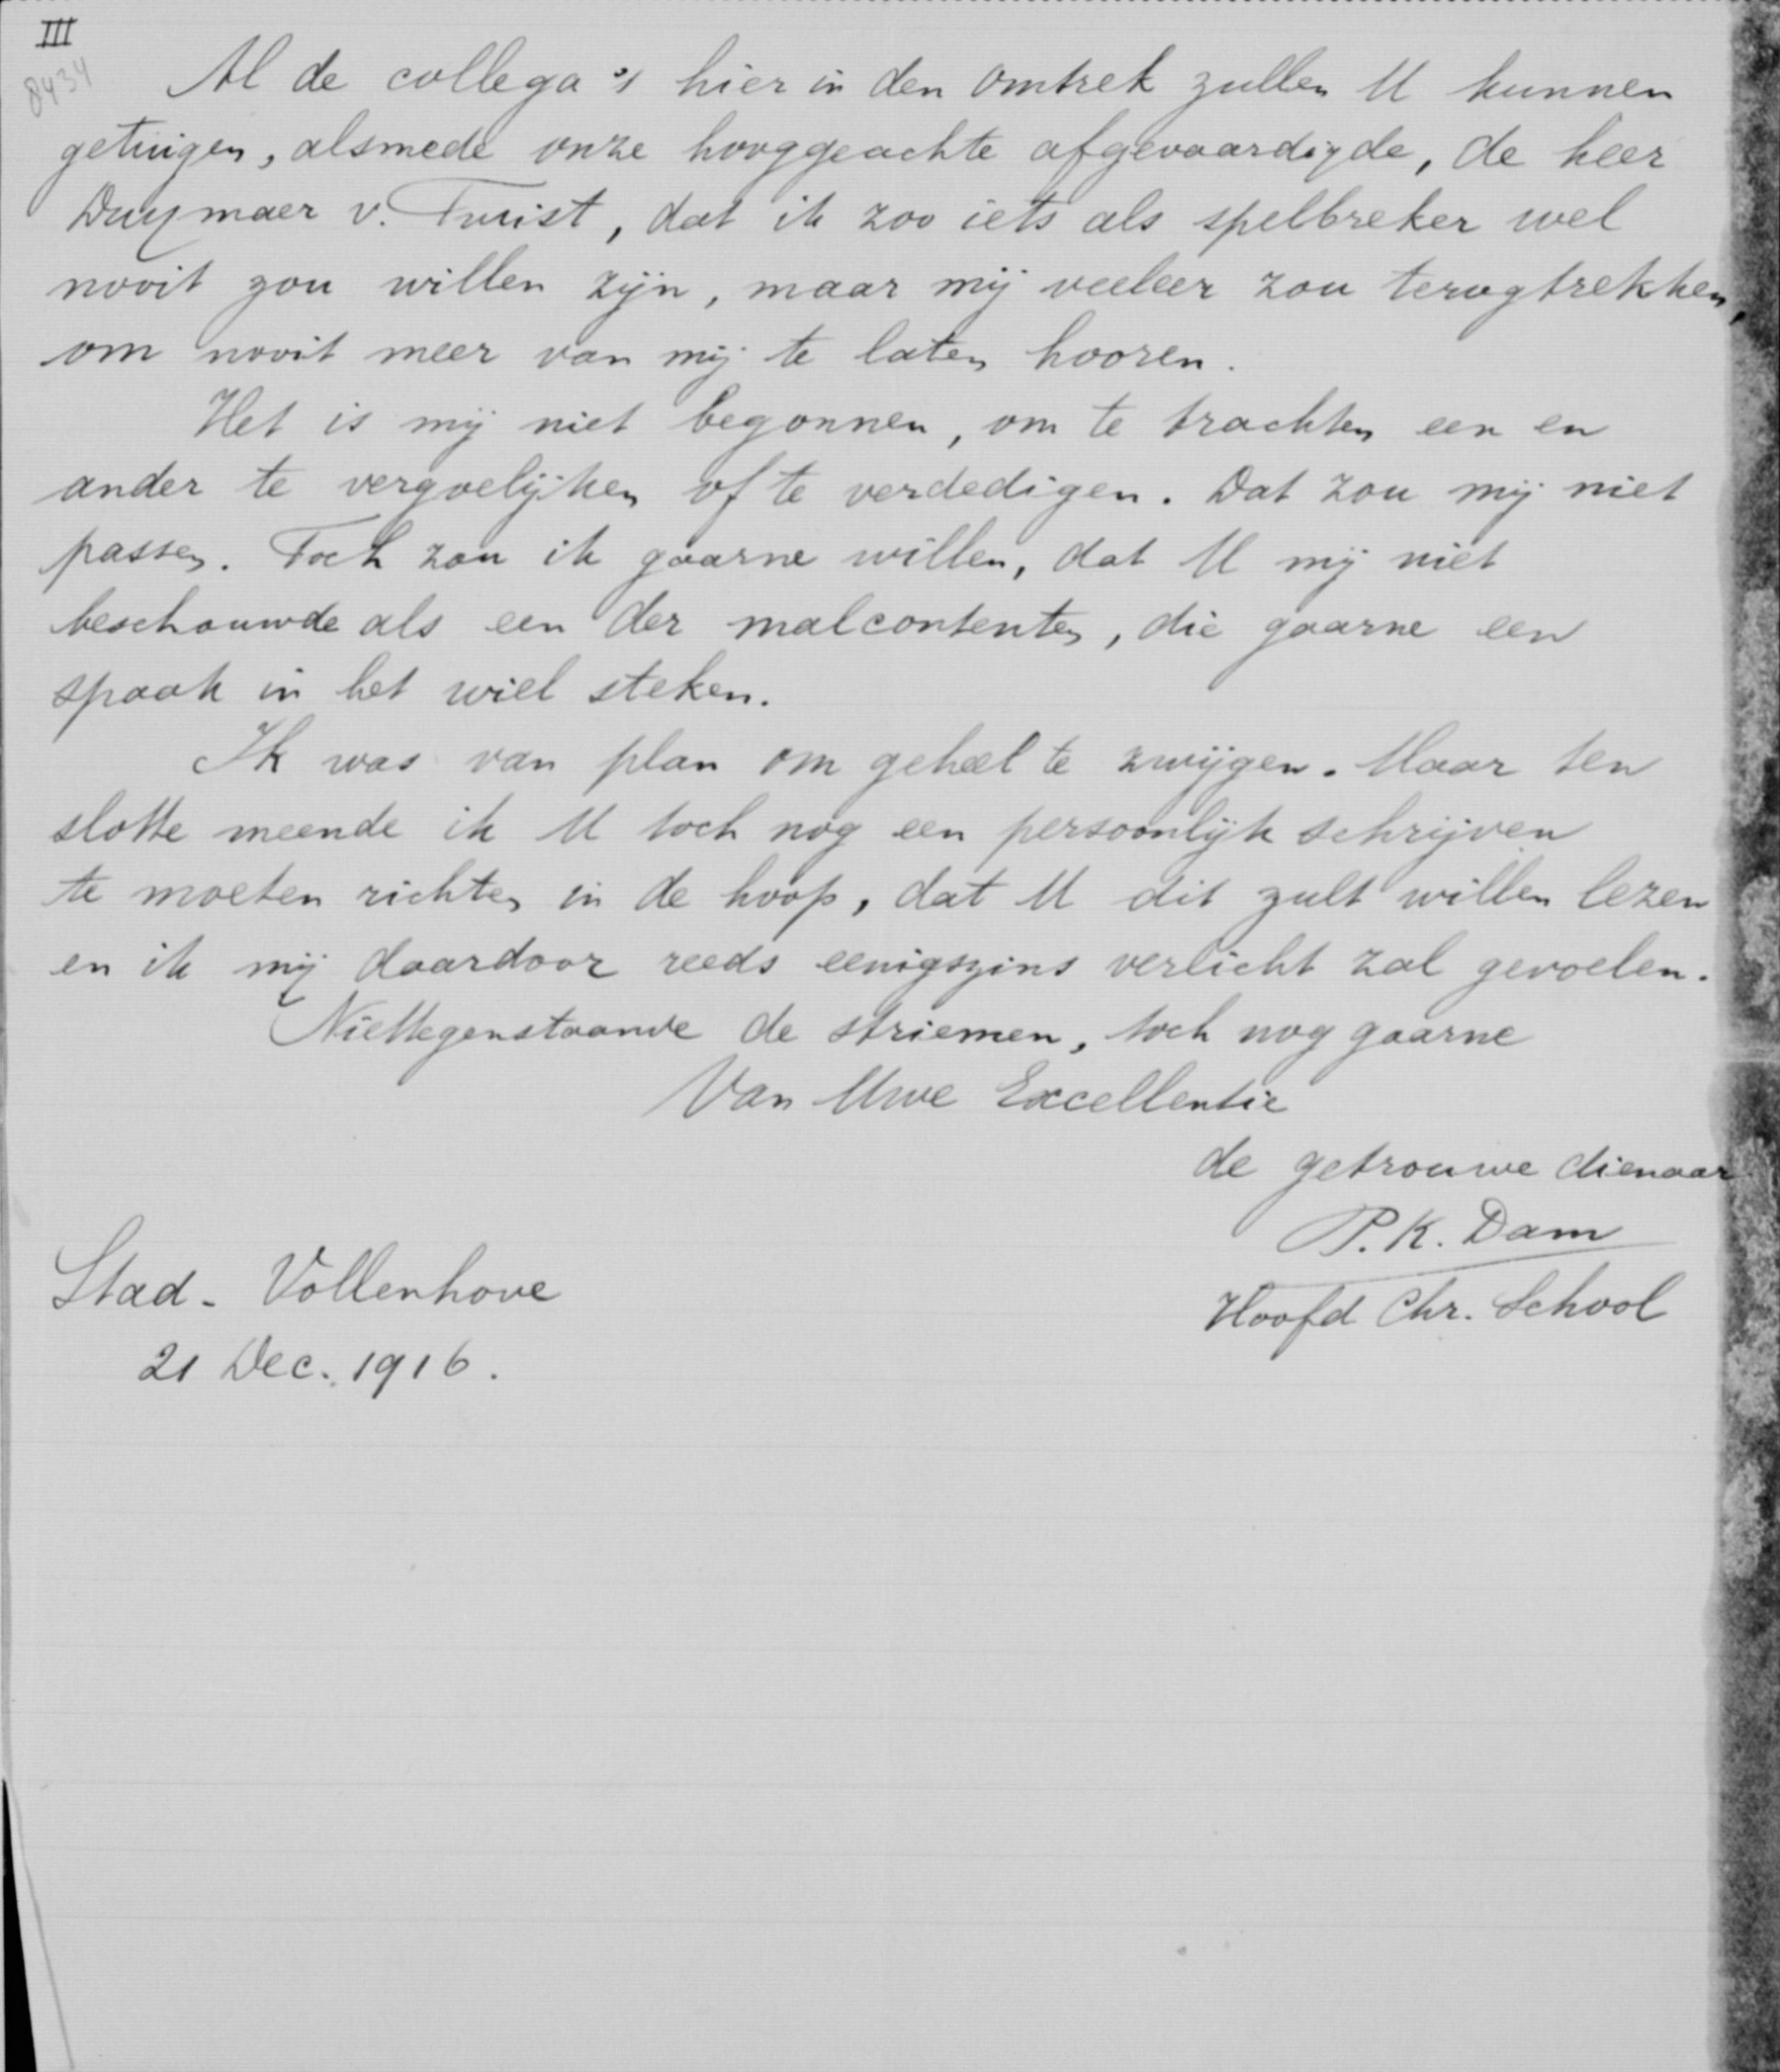 III
8434
Al de collega's hier in den omtrek zullen U kunnen
getuigen, alsmede onze hooggeachte afgevaardigde, de heer
Duymaer v. Twist, dat ik zoo iets als spelbreker wel
nooit zou willen zijn, maar mij veeleer zou terugtrekken,
om nooit meer van mij te laten hooren.
Het is mij niet begonnen, om te trachten een en
ander te vergoelijken of te verdedigen. Dat zou mij niet
passen. Toch zou ik gaarne willen, dat U mij niet
beschouwde als een der malcontenten, die gaarne een
spaak in het wiel steken.
Ik was van plan om geheel te zwijgen. Maar ten
slotte meende ik U toch nog een persoonlijk schrijven
te moeten richten in de hoop, dat U dit zult willen lezen
en ik mij daardoor reeds eenigszins verlicht zal gevoelen.
Niettegenstaande de striemen, toch nog gaarne
Van Uwe Excellentie
de getrouwe dienaar
P. K. Dam
Hoofd Chr. School
Stad - Vollenhove
21 Dec. 1916.